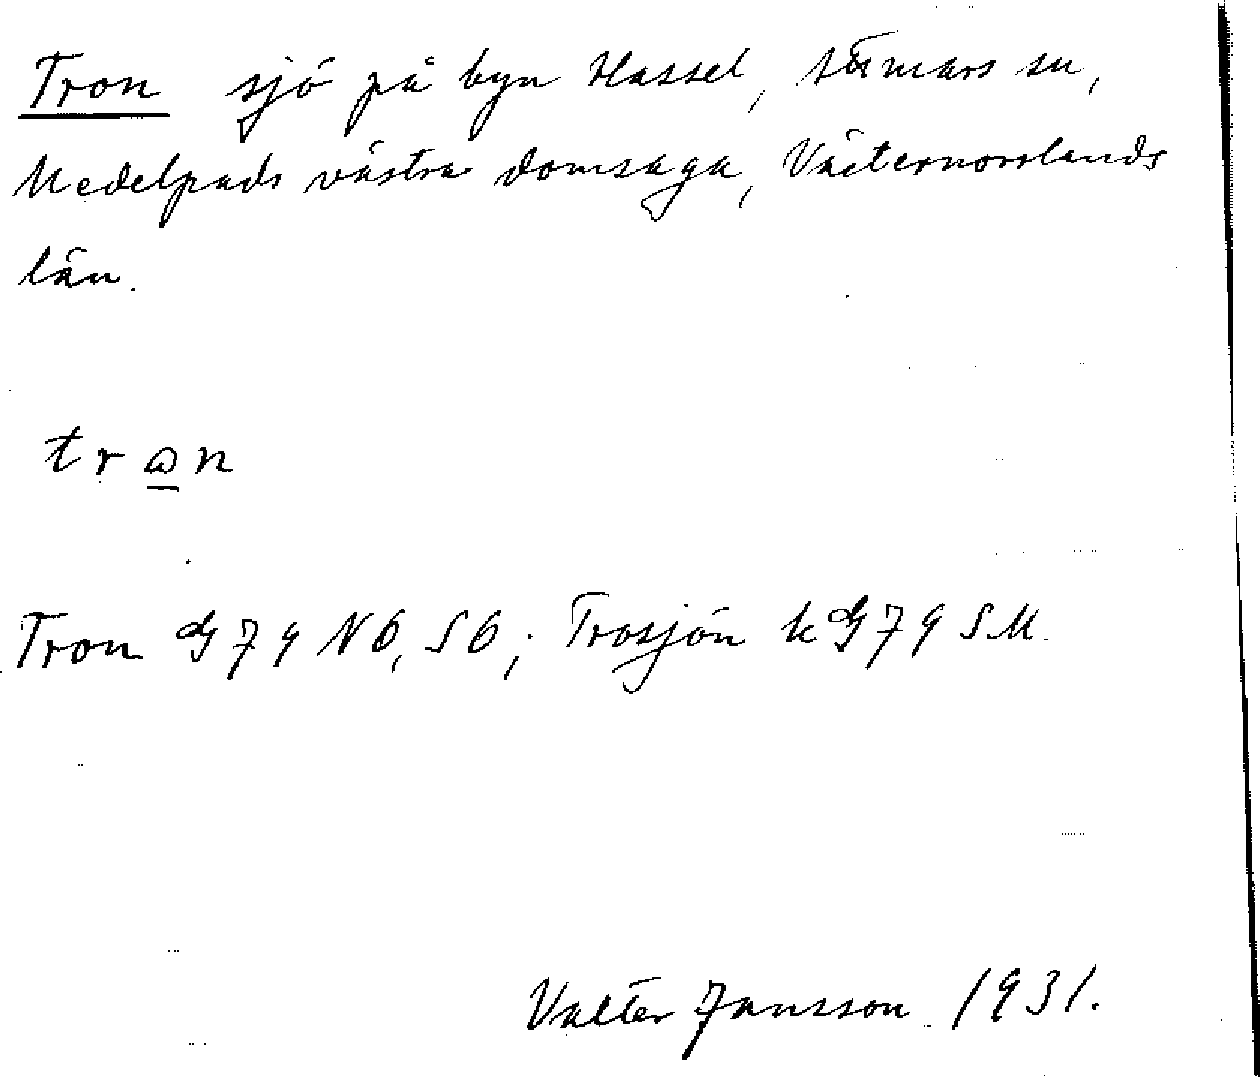 Tron sjö på byn Hassel, Stömars sn,
Medelpads västra domsaga, Västernorrlands
län.
tr<u>ω</u>n
Tron G 79 NÖ, SÖ; Trosjön k G 79 SM.
Valter Jansson 1931.